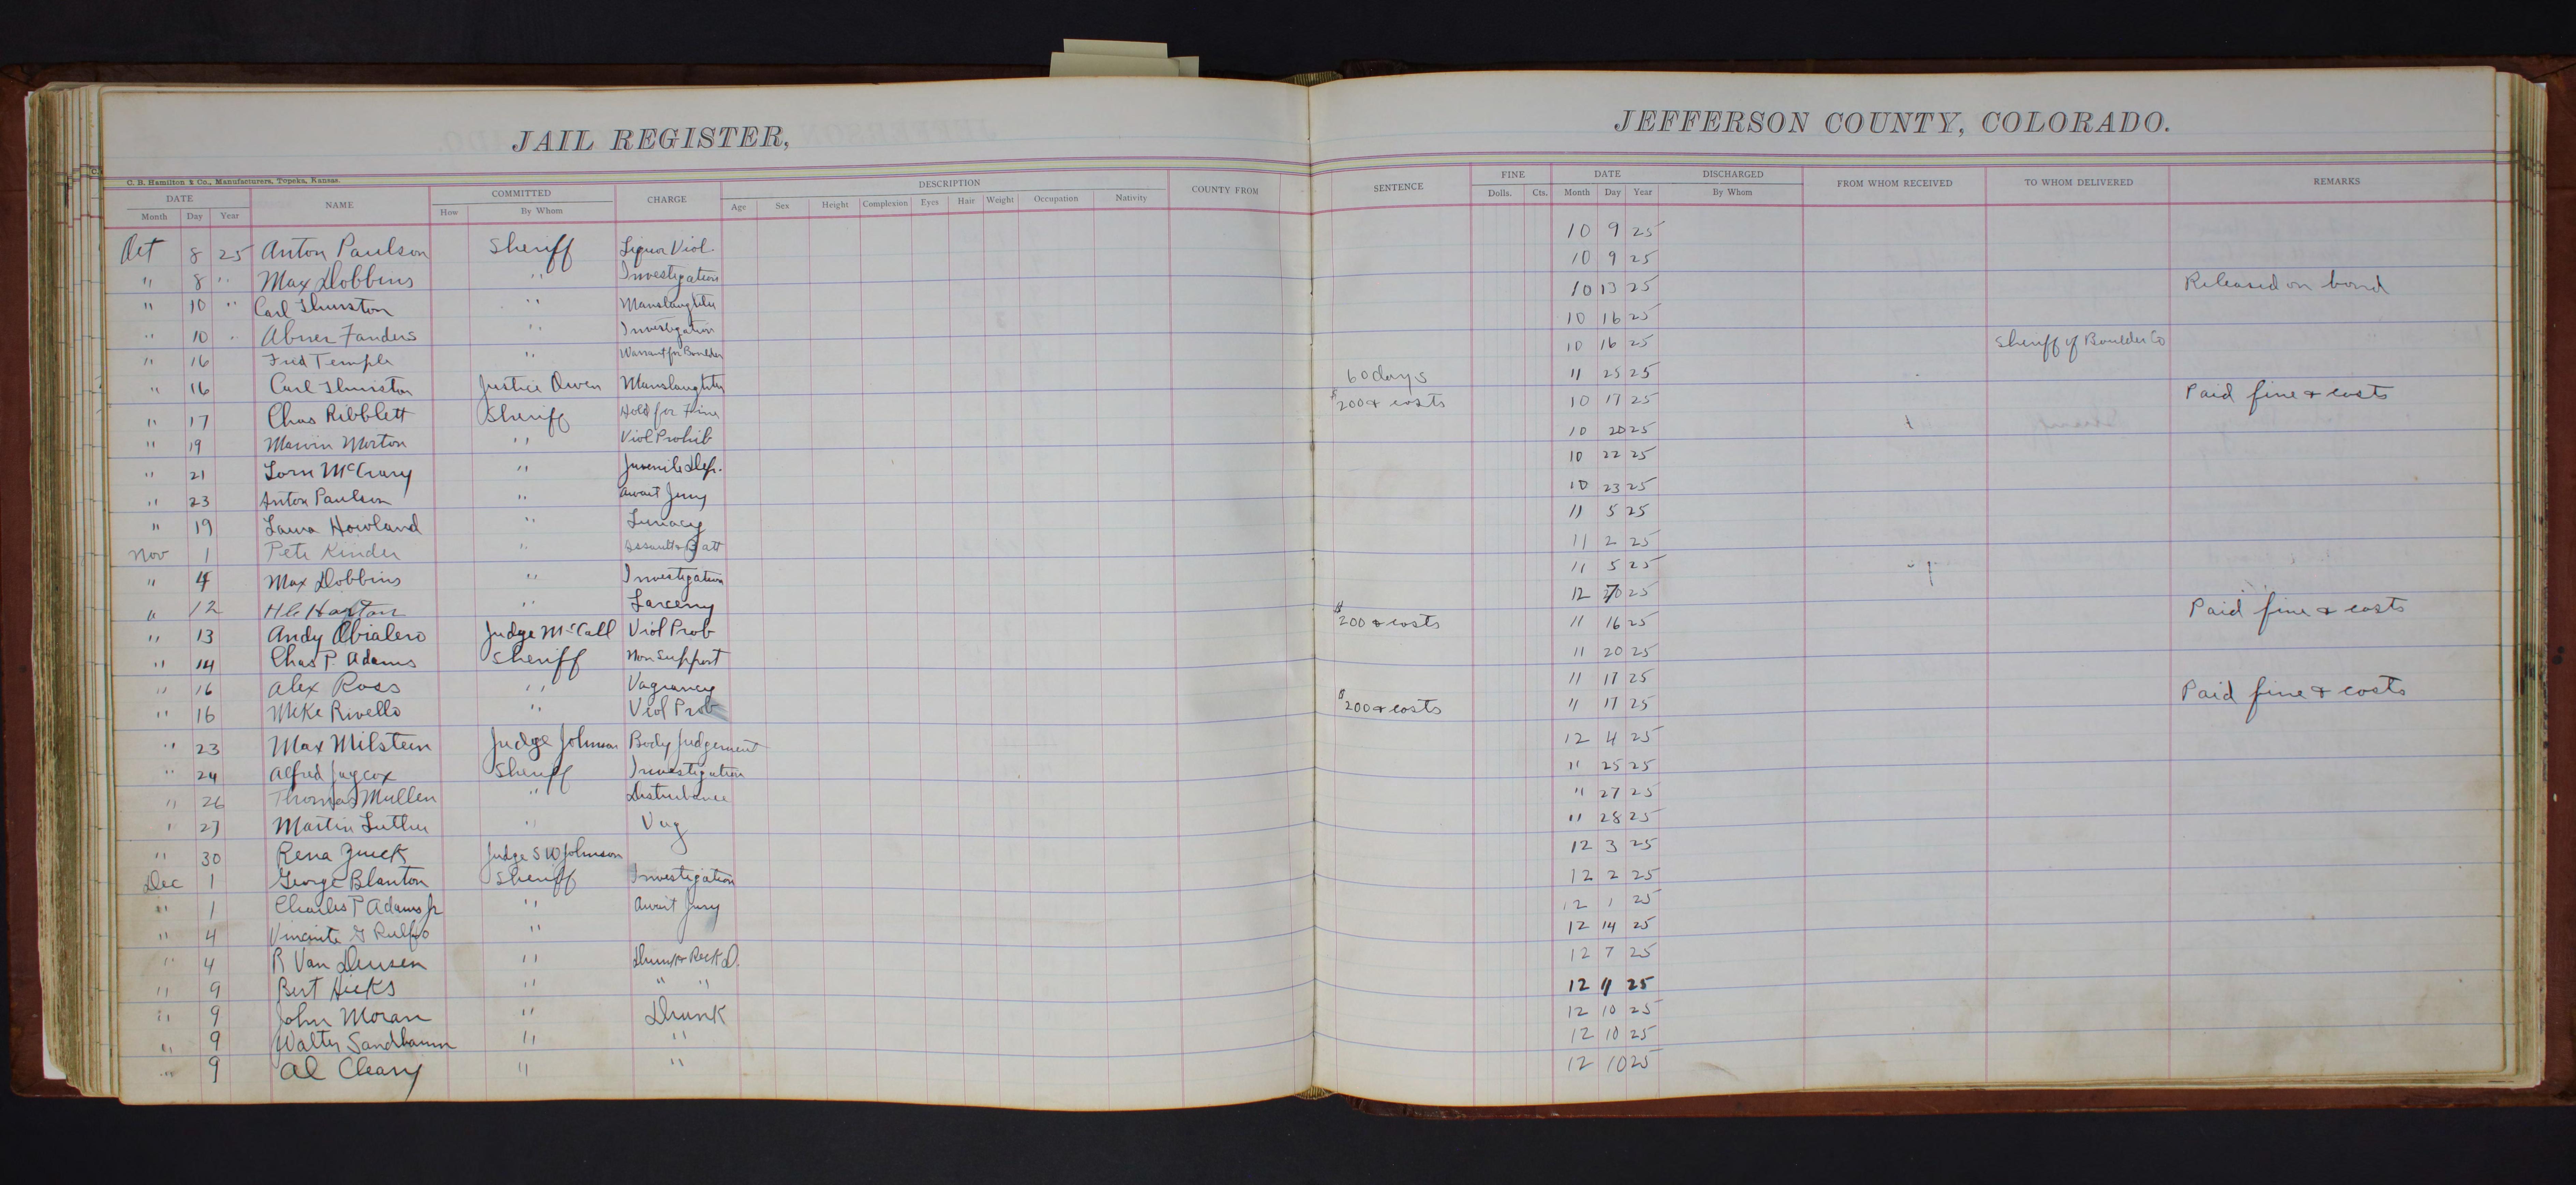 JAIL REGISTER,
C. B. Hamilton & Co., Manufacturers, Topeka, Kansas.
DATE NAME COMMITTED CHARGE DESCRIPTION COUNTY FROM
Month Day Year How By Whom Age Sex Height Complexion Eyes Hair Weight Occupation Nativity
Oct 8 25 Anton Paulson Sheriff Liquor Viol.
" 8 " Max Dobbins " Investigation
" 10 " Carl Thurston " Manslaughter
" 10 " Abner Fanders " Investigation
" 16 Fred Temple " Warrant for Boulder
" 16 Carl Thurston Justice Owen Manslaughter
" 17 Chas Ribblett Sheriff Held for Fine
" 19 Marvin Morton " Viol Prohib
" 21 Lorn McCrary " Juvenile Del.
" 23 Anton Paulson " Await Jury
" 19 Laura Howland " Lunacy
Nov 1 Pete Kinder " Assault & Batt
" 4 Max Dobbins " Investigation
" 12 Harton " Larceny
" 13 Andy Abialero Judge McCall Viol Prob
" 14 Chas P. Adams Sheriff Non Support
" 16 Alex Ross " Vagrancy
" 16 Mike Rivello " Viol Prob
" 23 Max Milstein Judge Johnson Body Judgement
" 24 Alfred Jaycox Sheriff Investigation
" 26 Thomas Mullen " Disturbance
" 27 Martin Luther " Vag
" 30 Rena Judge S W Johnson
Dec 1 George Blanton Sheriff Investigation
" 1 Charles P Adams Jr " Await Jury
" 4 G "
" 4 R Van Deusen " Drunk & Reck D.
" 9 Bert Hicks " " "
" 9 John Moran " Drunk
" 9 Walter Sandbaum " "
" 9 Al Cleary " "
JEFFERSON COUNTY, COLORADO.
SENTENCE FINE DATE DISCHARGED FROM WHOM RECEIVED TO WHOM DELIVERED REMARKS
Dolls. Cts. Month Day Year By Whom
10 9 25
10 9 25
10 13 25 Released on bond
10 16 25
10 16 25 Sheriff of Boulder Co
60 days 11 25 25
$200 & costs 10 17 25 Paid fine & costs
10 20 25
10 22 25
10 23 25
11 5 25
11 2 25
11 5 25
12 25
$200 & costs 11 16 25 Paid fine & costs
11 20 25
11 17 25
$200 & costs 11 17 25 Paid fine & costs
12 4 25
" 25 25
" 27 25
" 28 25
12 3 25
12 2 25
12 1 25
12 14 25
12 7 25
12 11 25
12 10 25
12 10 25
12 10 25